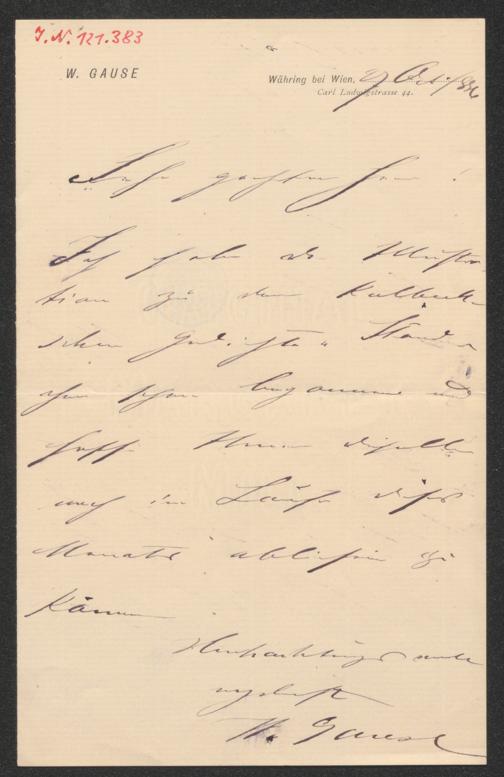 J. N. 121.383
W. GAUSE
Währing bei Wien, 2 Oct. 1886
Carl Ludwigstrasse 44.
Sehr geehrter Herr!
Ich habe die Illustra-
tion zu dem Kalbeck-
schen Gedichte „
schon begonnen und
hoffe Ihnen dieselbe
noch im Laufe dieses
Monats abliefern zu
können.
Hochachtungsvoll
ergebenst
W. Gause